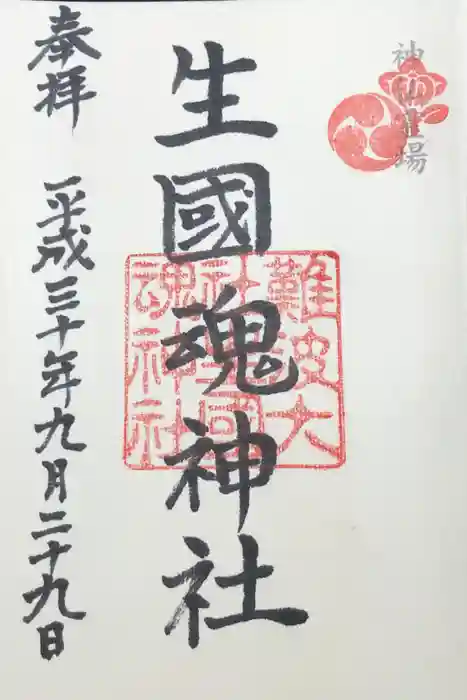 神仏霊場
生國魂神社
難波大
社生國
魂神社
奉拝
平成三十年九月二十九日